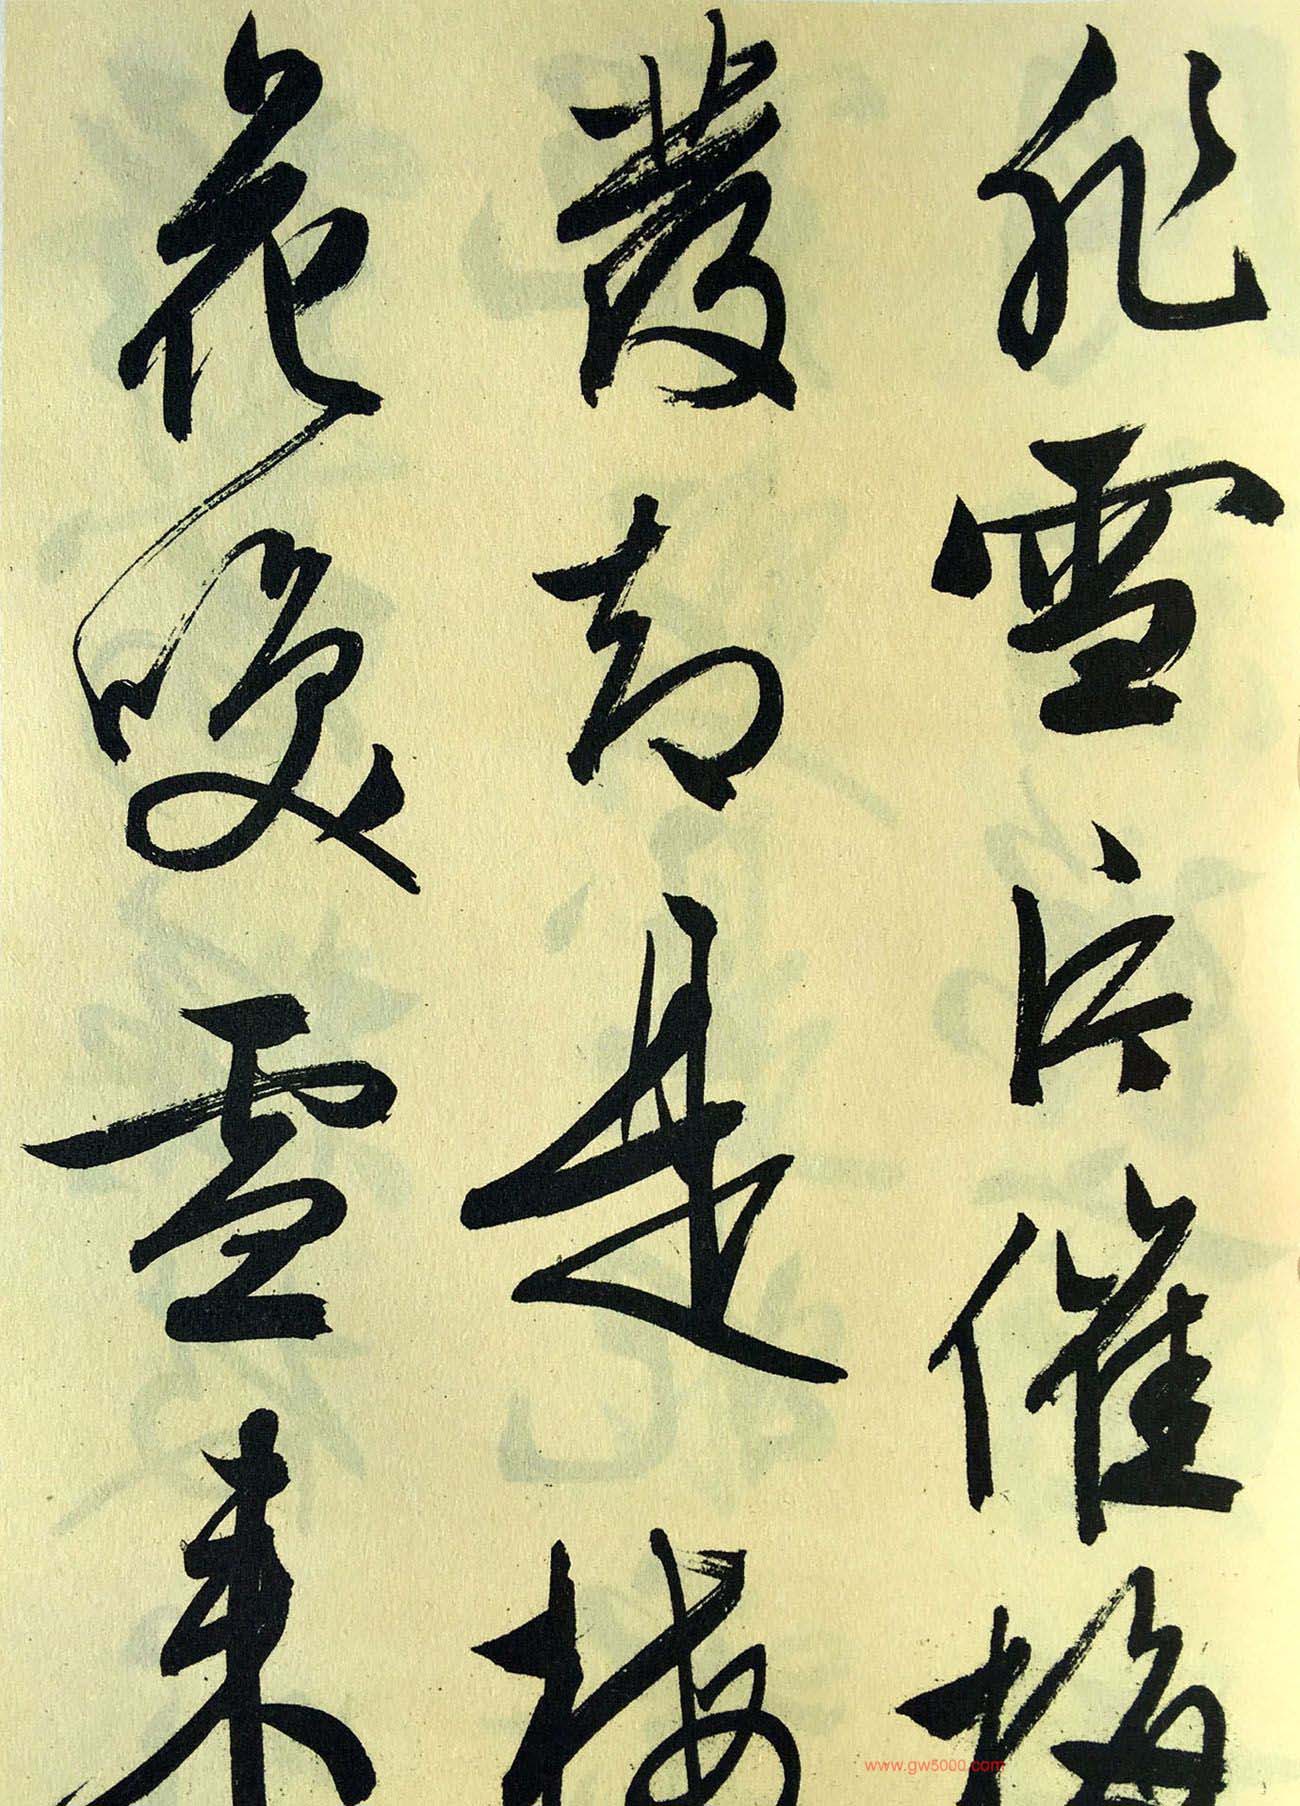 飛雪片催梅
發却是梅
花喚雪来
www.gw5000.com